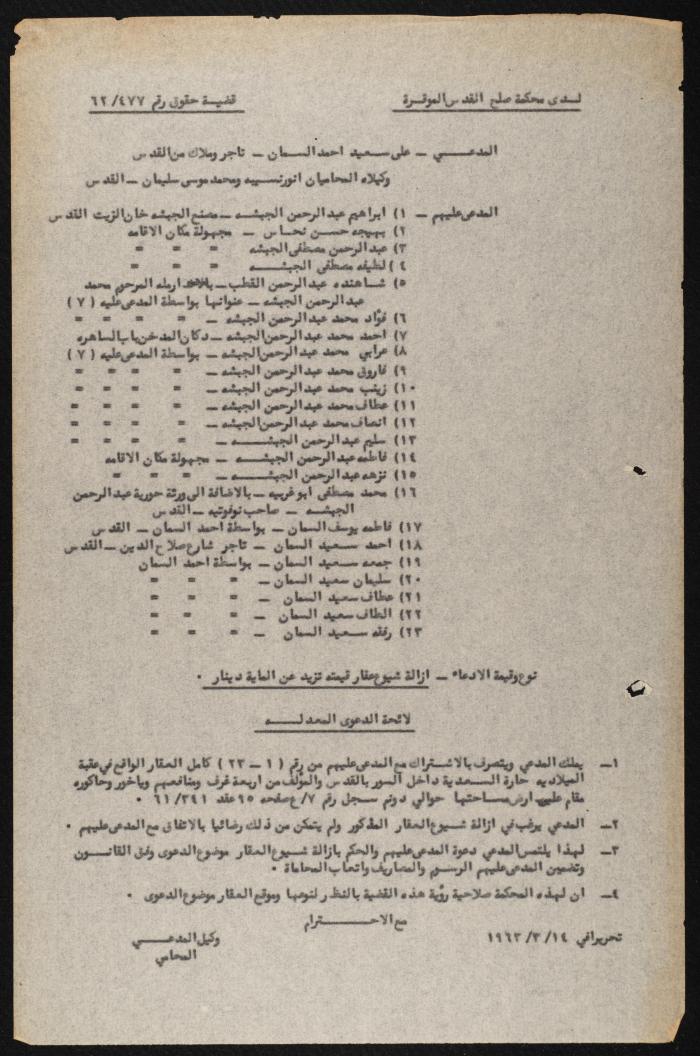 لـدى محكمة صلح القدس الموقـرة
قضيـة حقوق رقم ٦٢/٤٧٧
المدعـــي ــ علي سـعيد احمد السـمان ــ تاجر وملاك من القدس
وكيلاه المحاميان انور نسيبه ومحمد موسى سليمان ــ القدس
المدعى عليهم ــ ١) ابراهيم عبد الرحمن الجبشـه ــ مصنع الجبشه خان الزيت القدس
٢) بهيجه حسـن نحـاس ــ مجهولة مكان الاقامه
٣) عبد الرحمن مصطفى الجبشه = = =
٤) لطيفه مصطفى الجبشــه = = =
٥) شـاهنده عبد الرحمن القطب ــ ارمله المرحوم محمد
عبد الرحمن الجبشه ــ عنوانها بواسطة المدعى عليه ( ٧ )
٦) فؤاد محمد عبد الرحمن الجبشه ــ = = = =
٧) احمد محمد عبد الرحمن الجبشه ــ دكان المدخن باب الساهره
٨) عرابي محمد عبد الرحمن الجبشه ــ بواسطة المدعى عليه ( ٧ )
٩) فاروق محمد عبد الرحمن الجبشه ــ = = = =
١٠) زينب محمد عبد الرحمن الجبشه ــ = = = =
١١) عطاف محمد عبد الرحمن الجبشه ــ = = = =
١٢) انصاف محمد عبد الرحمن الجبشه ــ = = = =
١٣) سليم عبد الرحمن الجبشـــه ــ = = = =
١٤) فاطمه عبد الرحمن الجبشــه ــ مجهولة مكان الاقامه
١٥) نزهه عبد الرحمن الجبشـــه ــ = = =
١٦) محمد مصطفى ابو غربيه ــ بالاضافة الى ورثة حورية عبد الرحمن
الجبشـــه ــ صاحب نوفوتيه ــ القدس
١٧) فاطمه يوسف السمان ــ بواسطة احمد السمان ــ القدس
١٨) احمد سـعيد السمان ــ تاجر شارع صلاح الدين ــ القدس
١٩) جمعه سـعيد السمان ــ بواسطة احمد السمان
٢٠) سليمان سعيد السمان ــ = = =
٢١) عطاف سعيد السمان ــ = = =
٢٢) الطاف سعيد السمان ــ = = =
٢٣) رفقه سـعيد السمان ــ = = =
نوع وقيمة الادعاء ــ ازالة شيوع عقار قيمته تزيد عن الماية دينار .
لائحة الدعوى المعدلـــه
١ــ يملك المدعي ويتصرف بالاشـتراك مع المدعى عليهم من رقم ( ١ ــ ٢٣ ) كامل العقار الواقع في عقبة
الميلاديه حارة السـعدية داخل السور بالقدس والمؤلف من اربعة غرف ومنافعهم وياخور وحاكوره
مقام عليهم ارض مساحتها حوالي دونم سجل رقم ٧/ع صفحه ٩٥ عقد ٦١/٣٤١
٢ــ المدعي يرغب في ازالة شـيوع العقار المذكور ولم يتمكن من ذلك رضائيا بالاتفاق مع المدعى عليهم .
٣ــ لهذا يلتمس المدعي دعوة المدعى عليهم والحكم بازالة شيوع العقار موضوع الدعوى وفق القانــون
وتضمين المدعى عليهم الرسـوم والمصاريف واتعاب المحاماة .
٤ــ ان لهذه المحكمة صلاحية رؤية هذه القضية بالنظر لنوعها وموقع العقار موضوع الدعوى .
مع الاحـــترام
تحريرا في ١٩٦٣/٣/١٤
وكيل المدعـــي
المحامي